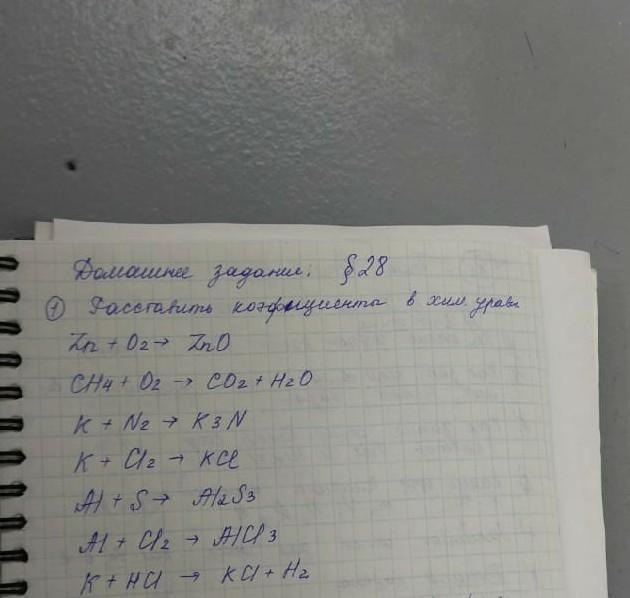 Домашнее задание: § 28
① Расставить коэффициента в хим. уравн
Zn + O2 → ZnO
CH4 + O2 → CO2 + H2O
K + N2 → K3N
K + Cl2 → KCl
Al + S → Al2S3
Al + Cl2 → AlCl3
K + HCl → KCl + H2